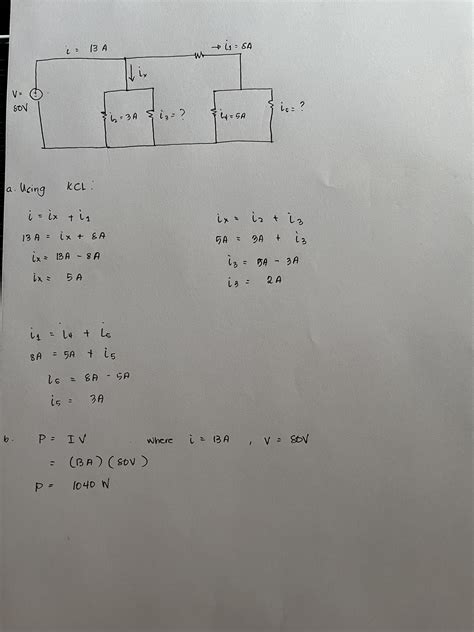 i = 13 A
→ i₁ = 8A
↓ iₓ
V =
80V
i₂ = 3A
i₃ = ?
i₄ = 5A
i₅ = ?
a. Using KCL :
i = iₓ + i₁
13 A = iₓ + 8A
iₓ = 13A - 8A
iₓ = 5A
iₓ = i₂ + i₃
5A = 3A + i₃
i₃ = 5A - 3A
i₃ = 2A
i₁ = i₄ + i₅
8A = 5A + i₅
i₅ = 8A - 5A
i₅ = 3A
b. P = IV where i = 13A , V = 80V
= (13A)(80V)
P = 1040 W